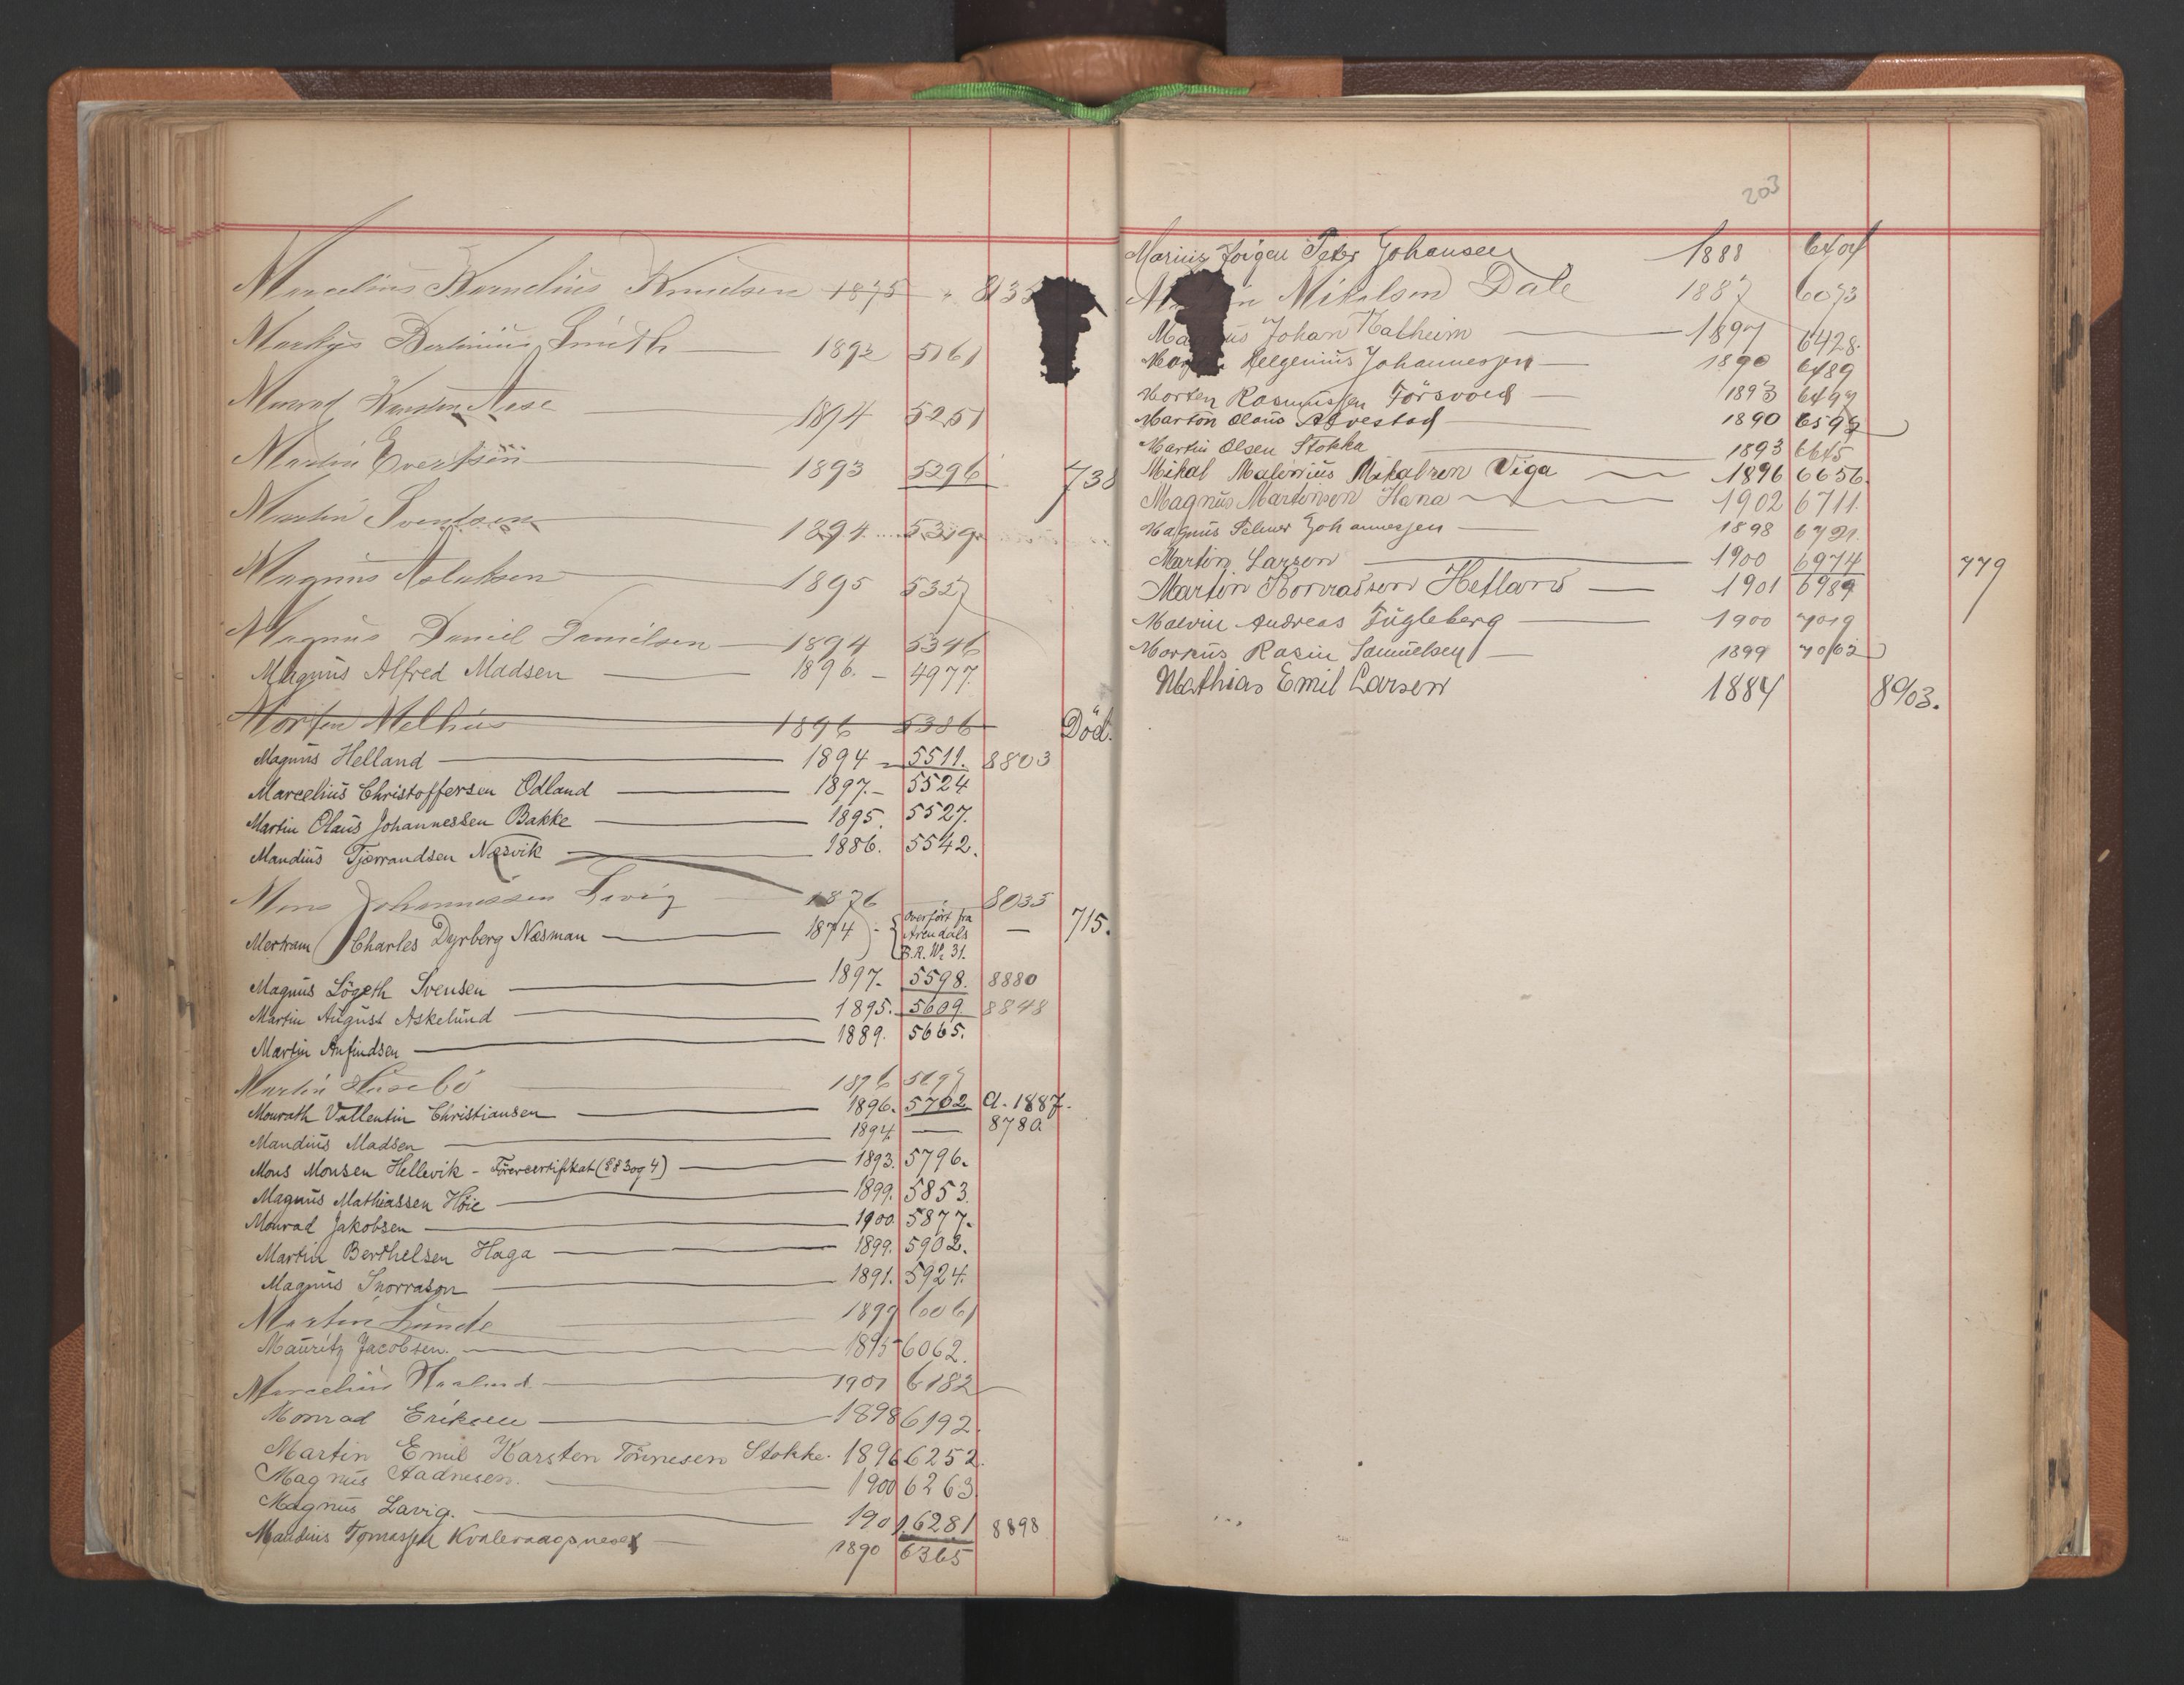 Marcelius Kornelius Knudsen 1875 " 8135
Markus Bertinius Smith 1892 5161
Monrad Karsten Aase 1894 5251
Martin Evertsen 1893 5296 738
Martin Svendsen 1894 5319
Magnus Aslaksen 1895 5327
Magnus Daniel Danielsen 1894 5346
Magnus Alfred Madsen 1896. 4977.
Morten Melhus 1896 5386 Död.
Magnus Helland 1894 5511. 8803
Marcelius Christoffersen Odland 1897. 5524
Martin Olaus Johannessen Bakke 1895. 5527.
Mandius Tjerrandsen Næsvik 1886. 5542.
Mons Johannessen Lavig 1876 8035
Mertram Charles Dyrberg Næsman 1874 Overført fra Arendals B.R. Nr 31. — 715.
Magnus Lögeth Svensen 1897. 5598. 8880
Martin August Askelund 1895. 5609. 8848
Martin Anfindsen 1889. 5665.
Martin Husebö 1896
Monrath Vallentin Christiansen 1896. 5702 a. 1887.
Mandius Madsen 1894. — 8780.
Mons Monsen Hellevik - Förercertifikat (§§ 3 og 4) 1893. 5796.
Magnus Mathiassen Höie 1899. 5853.
Monrad Jakobsen 1900. 5877.
Martin Berthelsen Haga 1899. 5902.
Magnus Snorrason 1891. 5924.
Martin Lunde 1899 6061
Mauritz Jacobsen. 1895 6062.
Marcelius Haaland 1901 6182
Monrad Eriksen 1898 6192.
Martin Emil Karsten Tönnesen Stokke. 1896 6252.
Magnus Aadnesen. 1900 6263.
Magnus Lavig. 1901. 6281 8898
Mandius Tomassen Kvalevaagsneset 1890 6365
203
Marius Jörgen Peter Johansen 1888 6404
Mikalsen Dale 1887 6073
Johan Kalheim 1897 6428.
Helgenius Johannessen 1890 6489
Morten Rasmussen Försvold 1893 6497
Marton Olaus Alvestad 1890 6599
Martin Olsen Stokka 1893 6645
Mikal Malenius Mikalsen Viga 1896 6656.
Magnus Martinsen Hana 1902 6711.
Magnus Selmer Johannessen 1898 6721.
Martin Larsen 1900 6974 779
Martin Konradsen Hetland 1901 6989
Malvin Andreas Fugleberg 1900 7019
Markus Rasin Samuelsen 1899 7062
Mathias Emil Larsen 1884 8903.